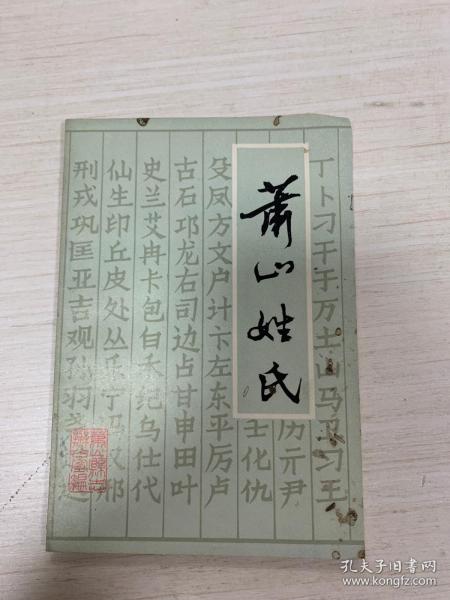 萧山姓氏
丁卜刁干于万士山马卫习王
历亓尹
壬化仇
殳凤方文户计卞左东平厉卢
古石邛龙右司边占甘申田叶
史兰艾冉卡包白禾纪乌仕代
仙生印丘皮处丛乐宁
邢戎巩匡亚吉观
羽
孔夫子旧书网
www.kongfz.com